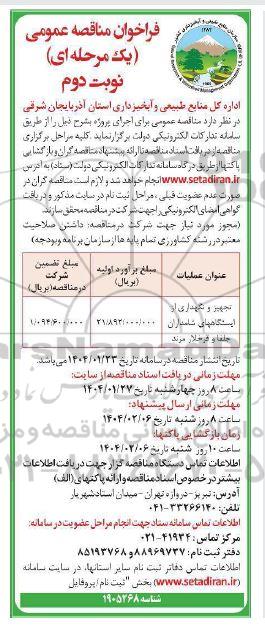 فراخوان مناقصه عمومی
(یک مرحله ای)
نوبت دوم
اداره کل منابع طبیعی و آبخیزداری استان آذربایجان شرقی
در نظر دارد مناقصه عمومی برای اجرای پروژه بشرح ذیل را از طریق
سامانه تدارکات الکترونیکی دولت برگزار نماید. کلیه مراحل برگزاری
مناقصه از دریافت اسناد مناقصه تا ارائه پیشنهاد مناقصه گران و بازگشایی
پاکتها از طریق درگاه سامانه تدارکات الکترونیکی دولت (ستاد) به آدرس
www.setadiran.ir انجام خواهد شد و لازم است مناقصه گران در
صورت عدم عضویت قبلی، مراحل ثبت نام در سایت مذکور و دریافت
گواهی امضای الکترونیکی را جهت شرکت در مناقصه محقق سازند.
(مجوز مورد نیاز جهت شرکت در مناقصه: داشتن صلاحیت
معتبر در رشته کشاورزی تمام پایه ها از سازمان برنامه و بودجه)
عنوان عملیات
مبلغ برآورد اولیه (بریال)
مبلغ تضمین شرکت در مناقصه (بریال)
تجهیز و نگهداری از ایستگاههای شامداران جلفا و فرخلار مرند
۲۱/۸۹۲/۰۰۰/۰۰۰
۱/۰۹۴/۶۰۰/۰۰۰
تاریخ انتشار مناقصه در سامانه تاریخ ۱۴۰۴/۰۱/۲۳ می باشد.
مهلت زمانی دریافت اسناد مناقصه از سایت:
ساعت ۸ روز چهارشنبه تاریخ ۱۴۰۴/۰۱/۲۷
مهلت زمانی ارسال پیشنهاد:
ساعت ۸ روز شنبه تاریخ ۱۴۰۴/۰۲/۰۶
زمان بازگشایی پاکتها:
ساعت ۱۰ روز شنبه تاریخ ۱۴۰۴/۰۲/۰۶
اطلاعات تماس دستگاه مناقصه گزار جهت دریافت اطلاعات
بیشتر در خصوص اسناد مناقصه و ارائه پاکتهای (الف)
آدرس: تبریز- دروازه تهران - میدان استاد شهریار
تلفن: ۳۳۲۶۶۱۴۰-۰۴۱
اطلاعات تماس سامانه ستاد جهت انجام مراحل عضویت در سامانه:
مرکز تماس: ۴۱۹۳۴-۰۲۱
دفتر ثبت نام: ۸۸۹۶۹۷۳۷ و ۸۵۱۹۳۷۶۸
اطلاعات تماس دفاتر ثبت نام سایر استانها، در سایت سامانه
(www.setadiran.ir) بخش "ثبت نام/پروفایل
شناسه ۱۹۰۵۲۶۸